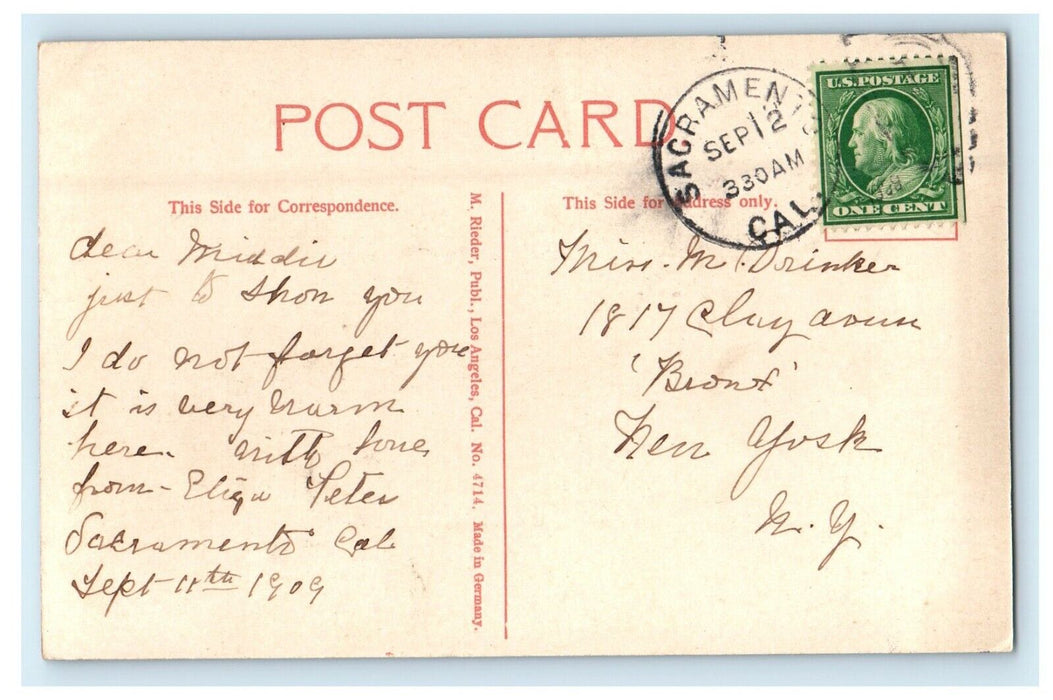 POST CARD
SACRAMENTO
SEP 12
330AM
CAL.
U.S. POSTAGE
ONE CENT
This Side for Correspondence.
This Side for Address only.
dear Middie
just to show you
I do not forget you
it is very warm
here. with love
from - Eliza Peter
Sacramento Cal
Sept 11th 1909
M. Rieder, Publ., Los Angeles, Cal. No. 4714. Made in Germany.
Miss. M. Drinker
1817 Clay avenu
'Bronx'
New York
N. Y.